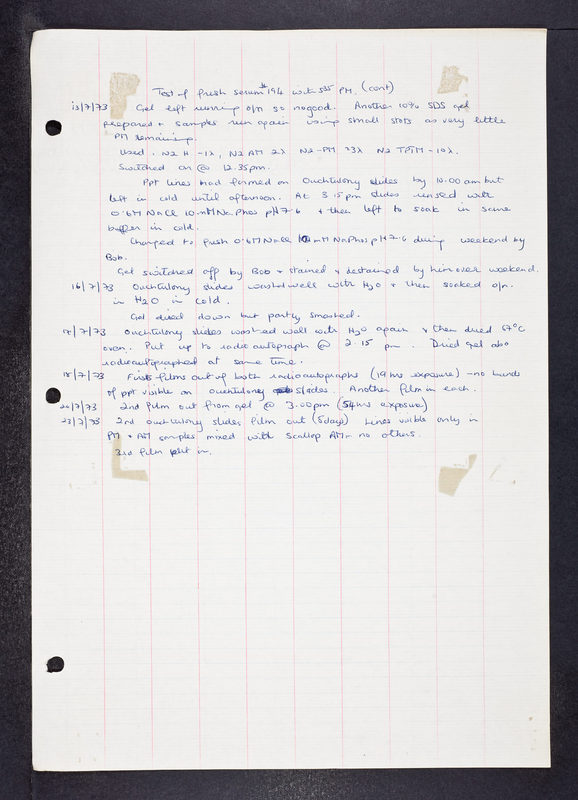 Test of fresh serum #194 with S35 PM. (cont)
13/7/73 Gel left running o/n so no good. Another 10% SDS gel
prepared + samples run again using small slots as very little
PM remaining.
Used. N2 H -1λ, N2 AM 2λ N2-PM 3λ N2 TPTM -10λ.
Switched on @ 12.35pm.
Ppt lines had formed on Ouchtulony slides by 10.00 am but
left in cold until afternoon. At 3.15pm slides rinsed with
0.6M NaCl 10mM NaPhos pH 7.6 + then left to soak in same
buffer in cold.
Changed to fresh 0.6M NaCl 10mM NaPhos pH 7.6 during weekend by
Bob.
Gel switched off by Bob + stained + destained by him over weekend.
16/7/73 Ouchtulony slides washed well with H2O + then soaked o/n.
in H2O in cold.
Gel dried down but partly smashed.
17/7/73 Ouchtulony slides washed well with H2O again + then dried 67°C
oven. Put up to radioautograph @ 2.15 pm. Dried gel also
radioautographed at same time.
18/7/73 First films out of both radioautographs (19 hrs exposure) - no bands
of ppt visible on Ouchtulony slides. Another film in each.
20/7/73 2nd film out from gel @ 3.00pm (54hrs exposure)
23/7/73 2nd ouchtulony slides film out (5days) Lines visible only in
PM + AM samples mixed with Scallop AM - no others.
3rd film put in.